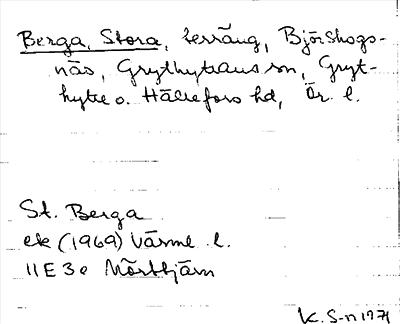 Berga, Stora, terräng, Björskogs-
näs, Grythyttans sn, Gryt-
hytte o. Hällefors hd, Ör. l.
St. Berga
ek (1969) Värml. l.
11E 3e Mörttjärn
K. S-n 1971